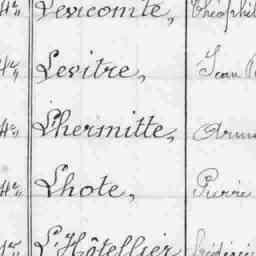 4e,, Levicomte, Théophil
4e,, Levitre, Jean
4e,, Lhermitte,
4e,, Lhote, Pierre
L'Hôtellier Frédéric